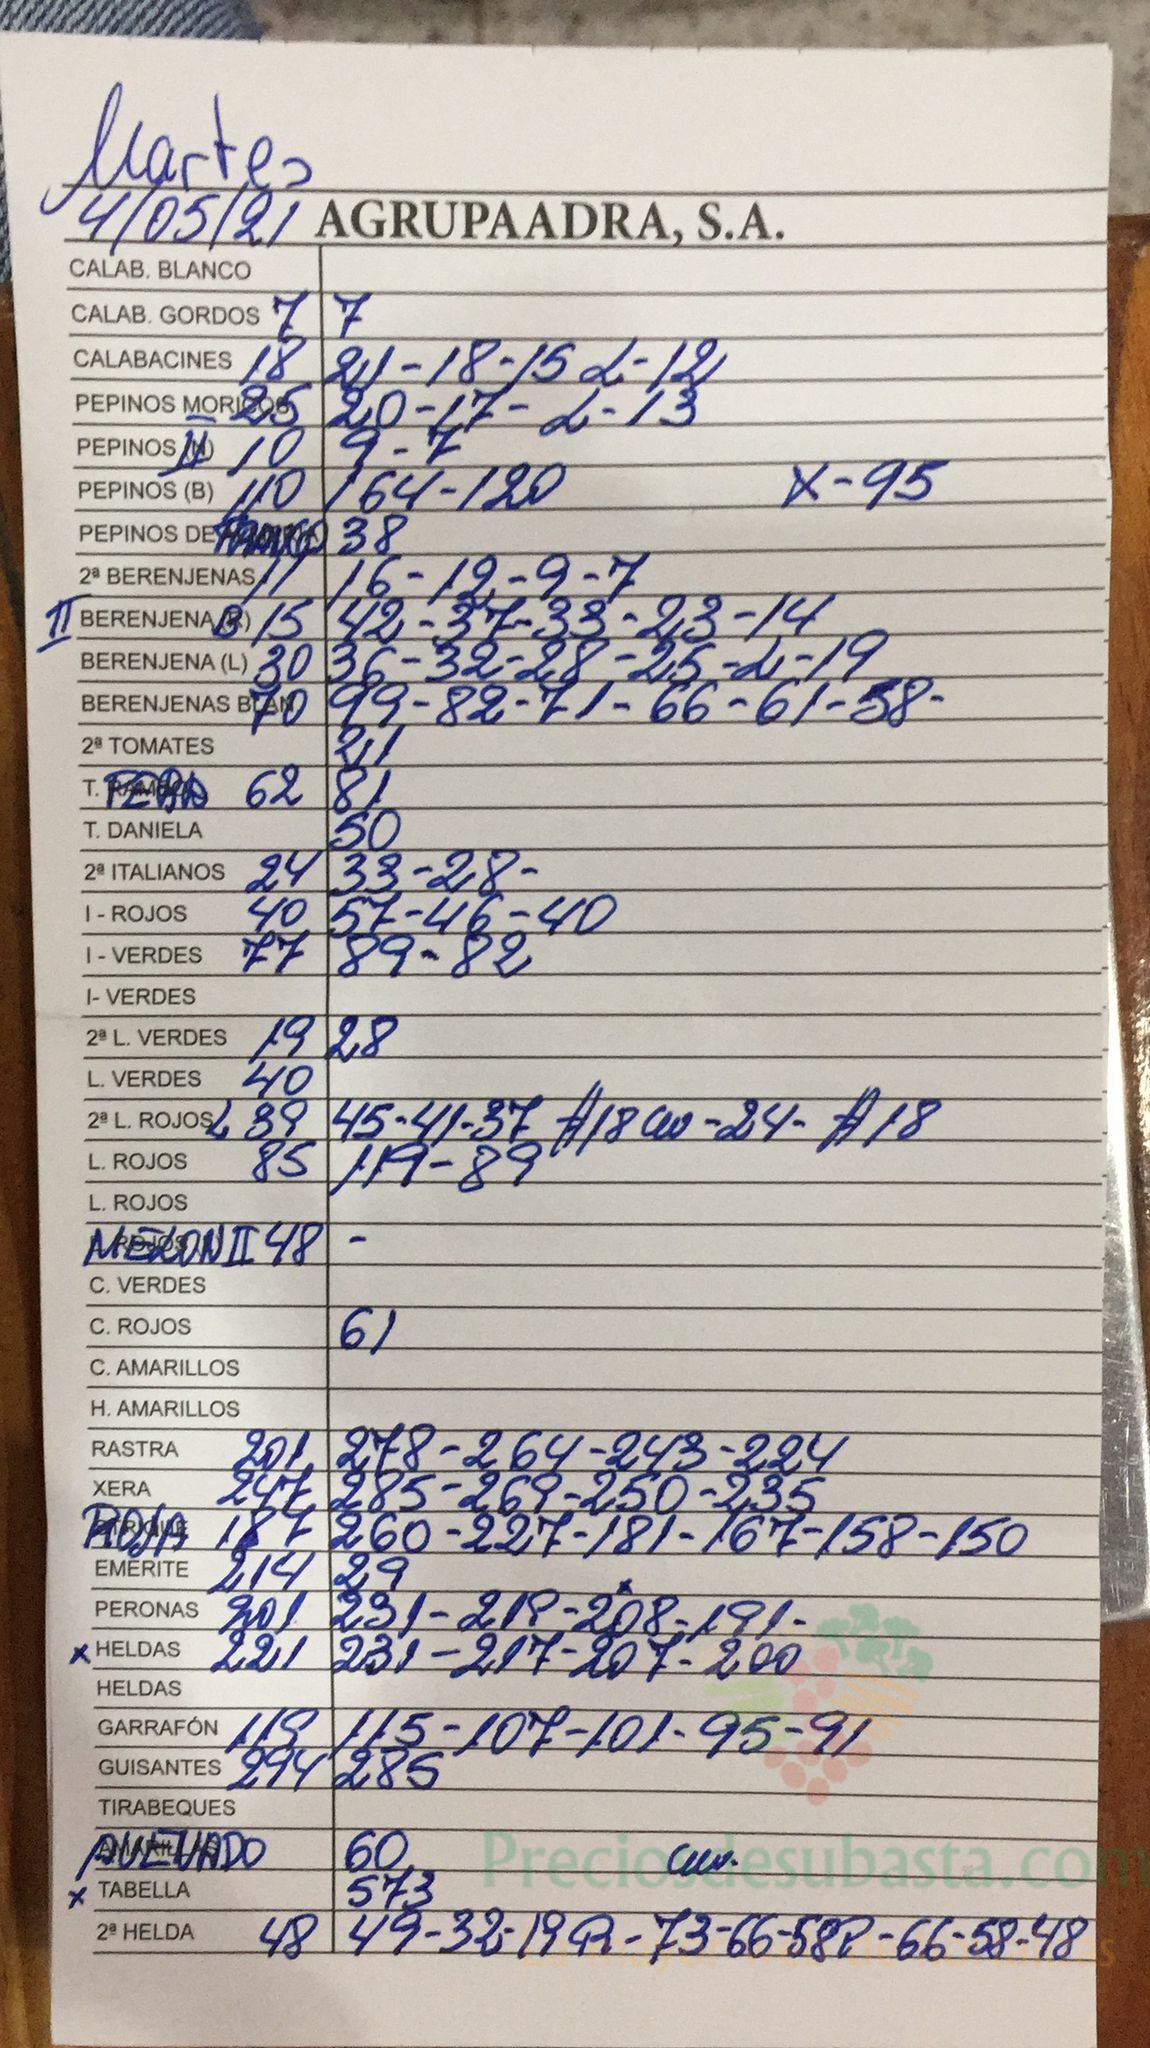 Martes
4/05/21 AGRUPAADRA, S.A.
CALAB. BLANCO
CALAB. GORDOS 7 7
CALABACINES 18 21-18-15 L-12
PEPINOS MORICOS 25 20-17- L-13
PEPINOS II 10 9-7
PEPINOS (B) 110 164-120 X-95
PEPINOS DE 38
2ª BERENJENAS 11 16-12-9-7
II BERENJENA B 15 42-37-33-23-14
BERENJENA (L) 30 36-32-28-25-L-19
BERENJENAS BLAN 70 99-82-71-66-61-58-
2ª TOMATES 21
T. PERA 62 81
T. DANIELA 50
2ª ITALIANOS 24 33-28-
I - ROJOS 40 57-46-40
I - VERDES 77 89-82
I- VERDES
2ª L. VERDES 19 28
L. VERDES 40
2ª L. ROJOS L 39 45-41-37 A18 -24- A18
L. ROJOS 85 119-89
L. ROJOS
MELON II 48 -
C. VERDES
C. ROJOS 61
C. AMARILLOS
H. AMARILLOS
RASTRA 201 278-264-243-224
XERA 247 285-269-250-235
ROJA 187 260-227-181-167-158-150
EMERITE 214 29
PERONAS 201 231-219-208-191-
x HELDAS 221 231-217-207-200
HELDAS
GARRAFÓN 119 115-107-101-95-91
GUISANTES 294 285
TIRABEQUES
60
Preciosdesubasta.com
x TABELLA 573
2ª HELDA 48 49-32-19R-73-66-58R-66-58-48